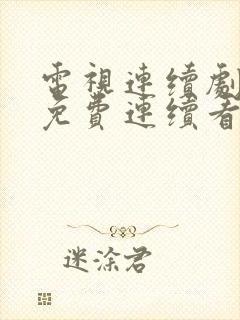 電視連續劇
免費連續看
迷涂君